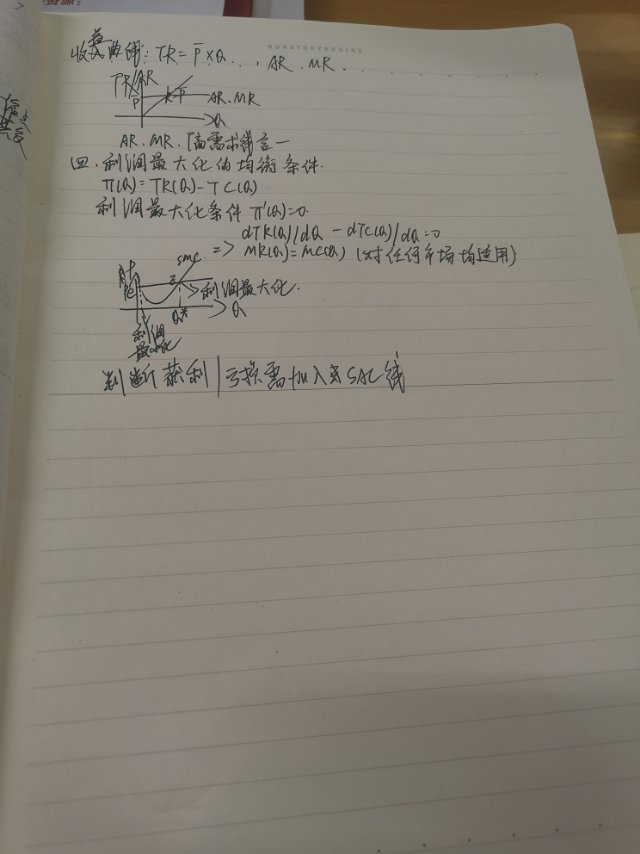 OURSTORYBEGINS
收益曲线: TR = P̄ × Q . , AR . MR .
TR/AR
P̄
AR . MR
Q
AR . MR . 厂商需求线合一
四 . 利润最大化的均衡条件.
π(Q) = TR(Q) - TC(Q)
利润最大化条件 π'(Q)=0.
dTR(Q)/dQ - dTC(Q)/dQ = 0
=> MR(Q) = MC(Q) (对任何市场均适用)
SMC
E
利润最大化.
Q*
Q
利润
最小化
判断获利/亏损需加入SAC线